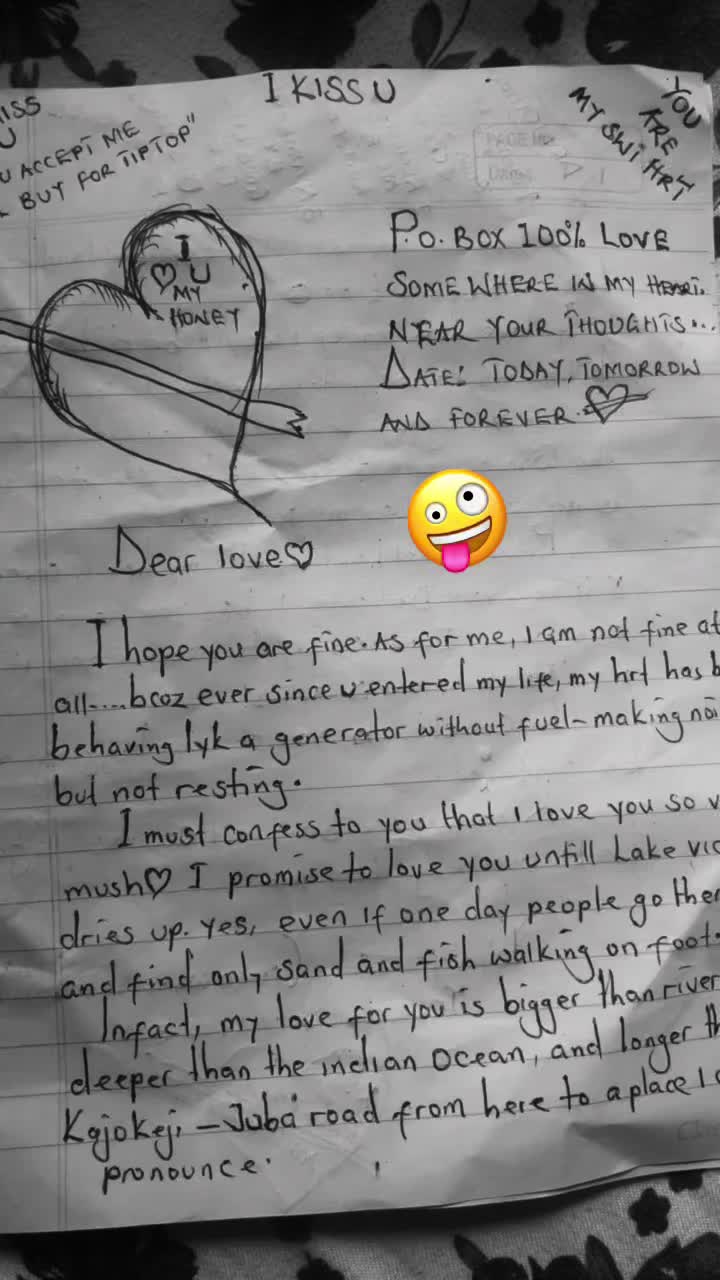 I KISS U
KISS
U
U ACCEPT ME
BUY FOR TIPTOP"
YOU
ARE
MY SWIHRT
PAGE No.
I
♡ U
MY
HONEY
P.O. BOX 100% LOVE
SOMEWHERE IN MY HEART.
NEAR YOUR THOUGHTS...
DATE: TODAY, TOMORROW
AND FOREVER.
Dear love♡
I hope you are fine. As for me, I am not fine at
all....bcoz ever since u entered my life, my hrt has b
behaving lyk a generator without fuel-making noi
but not resting.
I must confess to you that I love you so v
mush♡ I promise to love you untill Lake vic
dries up. Yes, even if one day people go ther
and find only sand and fish walking on foot.
Infact, my love for you is bigger than river
deeper than the indian Ocean, and longer th
Kajokeji - Juba road from here to a place I c
pronounce.